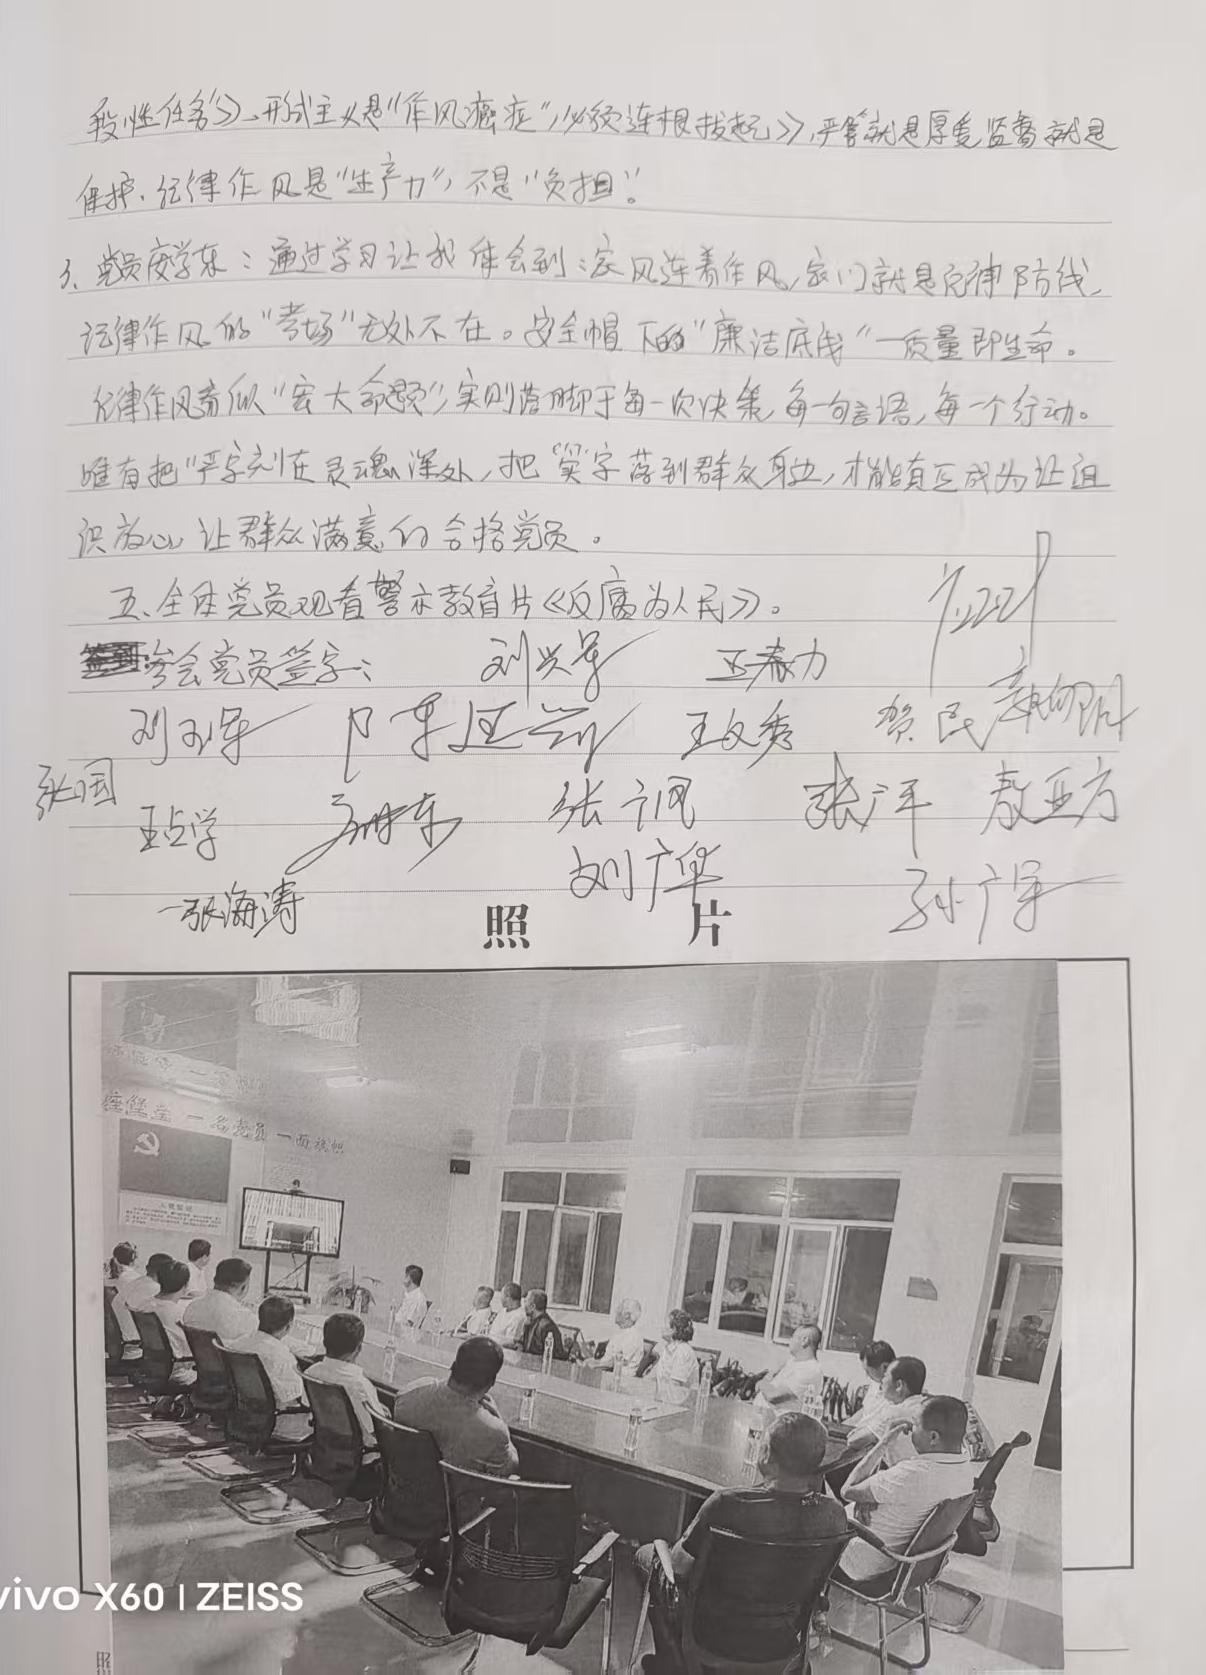 段性任务》、形式主义是“作风癌症”，必须连根拔起》，严管就是厚爱，监督就是
保护，纪律作风是“生产力”，不是“负担”。
3、党员庞学东：通过学习让我体会到：家风连着作风，家门就是纪律防线，
纪律作风的“考场”无处不在。安全帽下的“廉洁底线”一质量即生命。
纪律作风看似“宏大命题”，实则落脚于每一次决策，每一句言语，每一个行动。
唯有把“严字刻在灵魂深处，把“实”字落到群众身边，才能真正成为让组
织放心，让群众满意的合格党员。
五、全体党员观看警示教育片《反腐为人民》。
参会党员签字：
刘兴军 王春力
刘玉军 王文秀 贺民
张国 王占学 张训风 张洋 敖亚方
刘广华
张海涛 孙广军
照片
座堡垒 一名党员 一面旗帜
入党誓词
vivo X60 | ZEISS
照